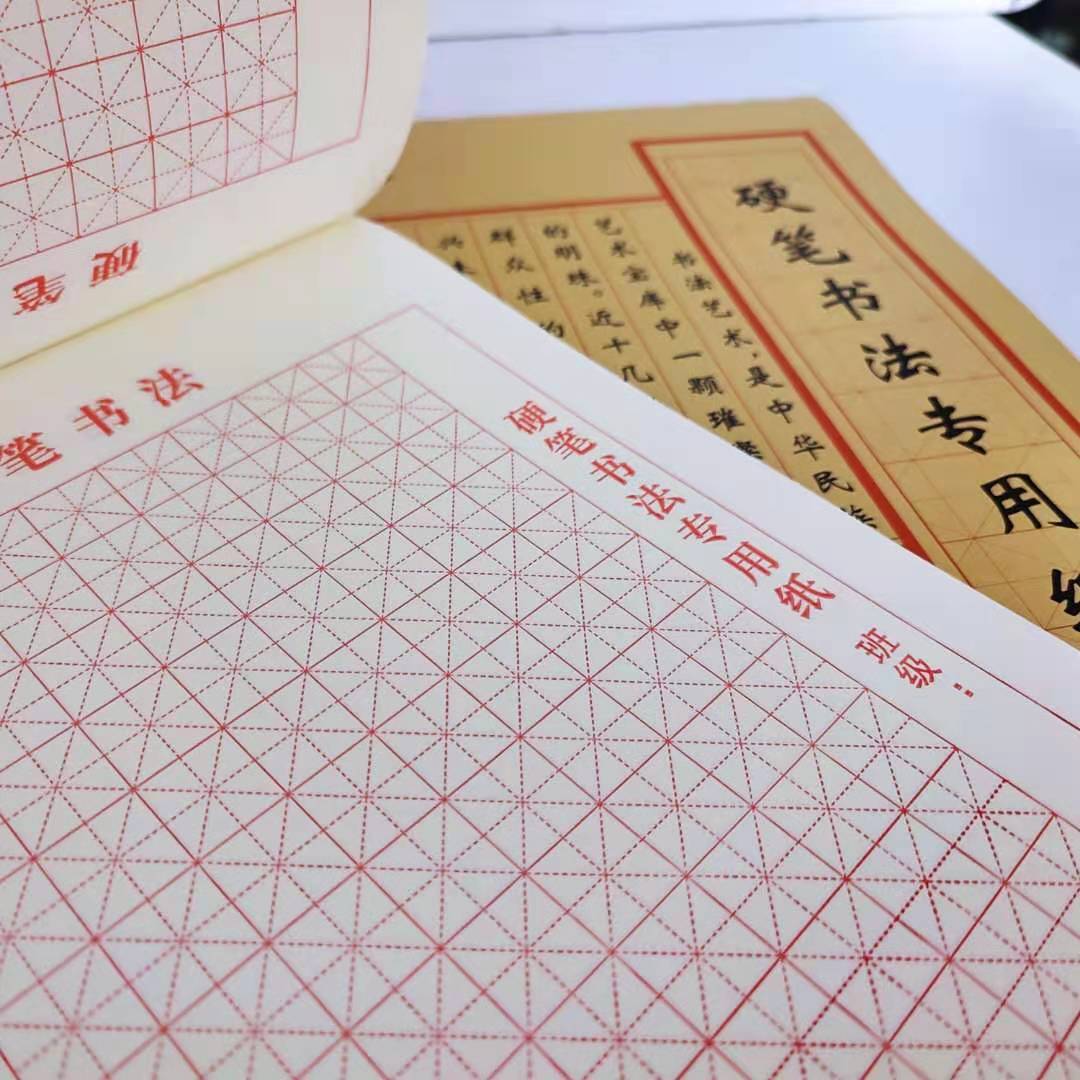 硬笔
笔书法
硬笔书法专用纸 班级:
硬笔书法专用
书法艺术,是中华民族
艺术宝库中一颗璀璨
的明珠。近十几
群众性的